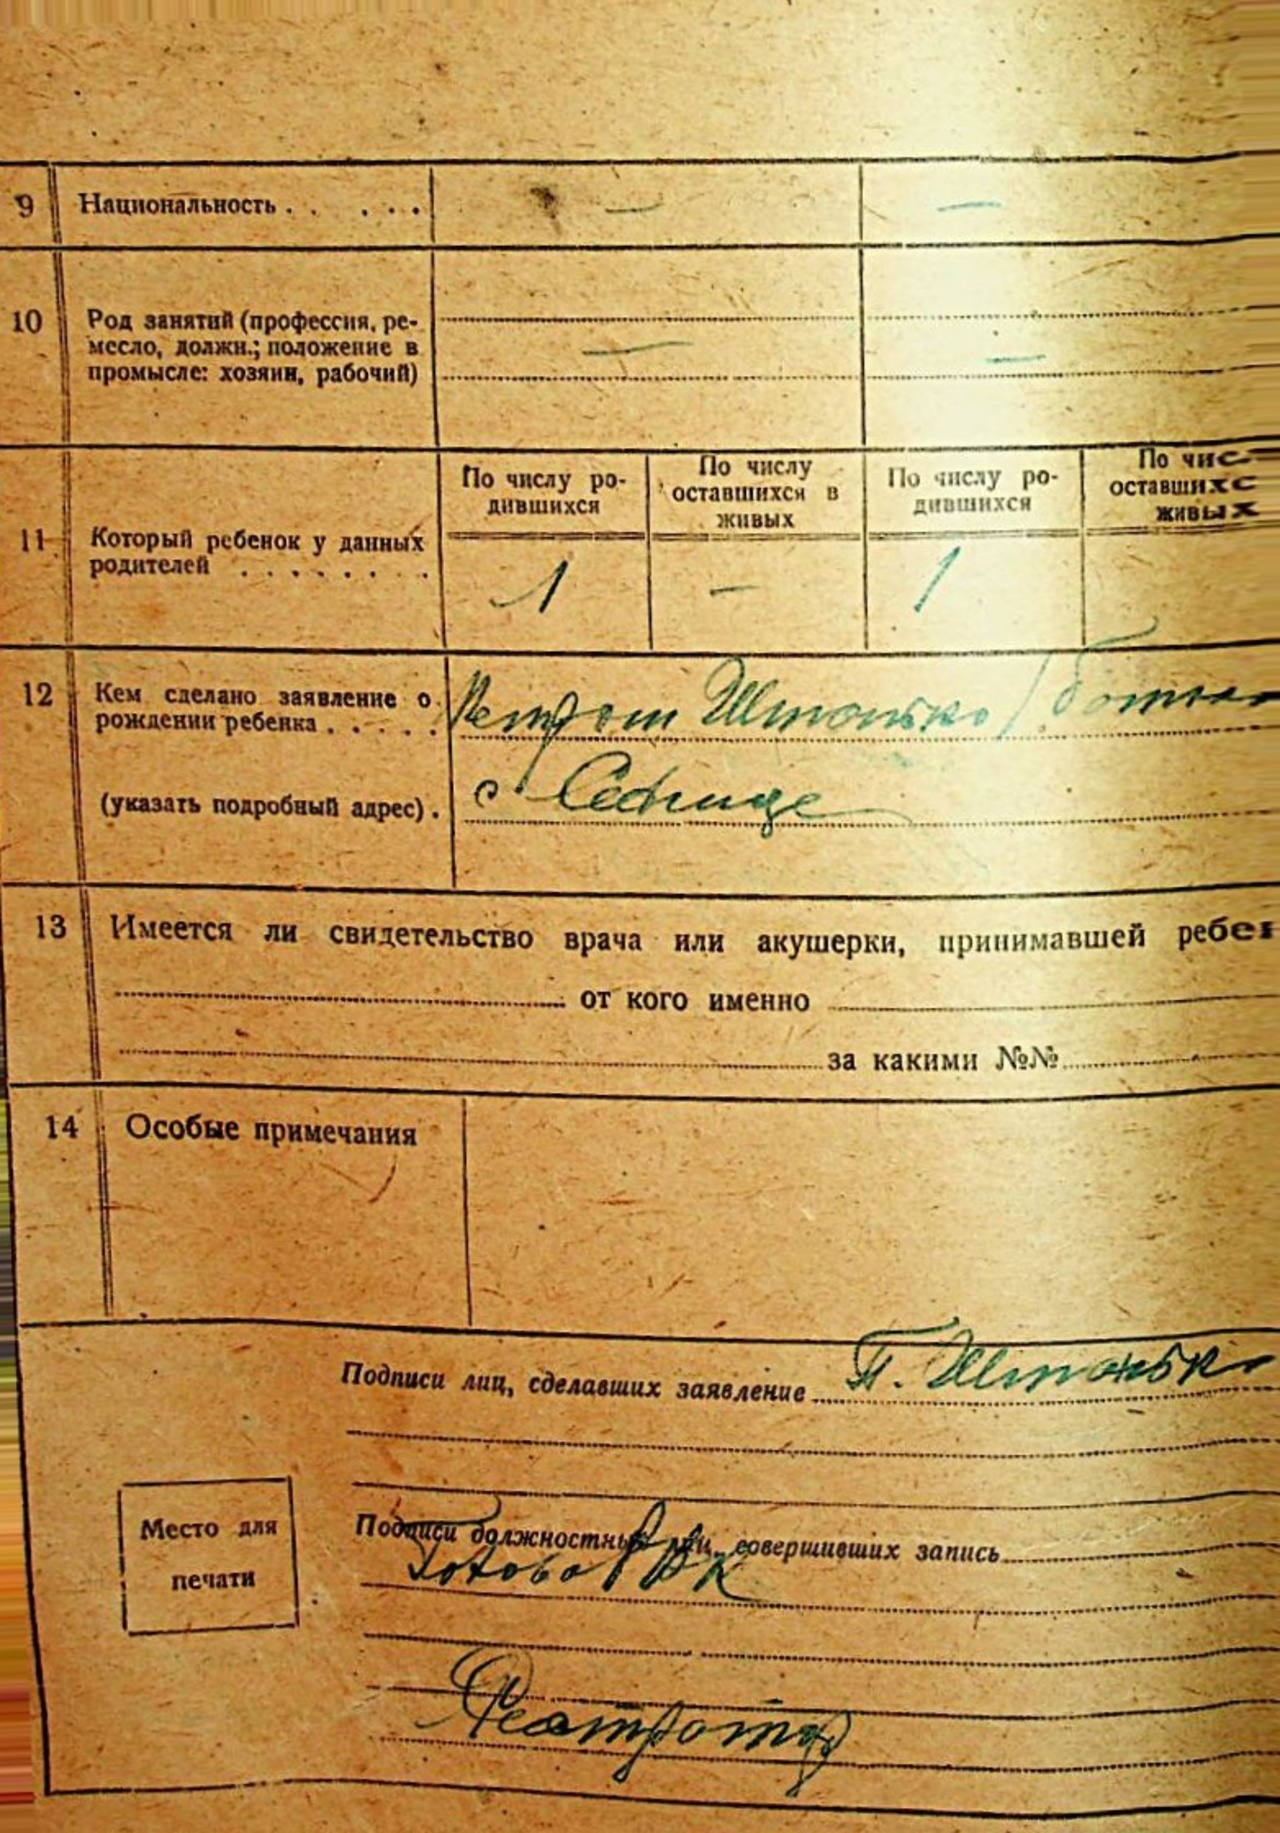 9 Национальность . . . . . . — —
10 Род занятий (профессия, ре-
месло, должн.; положение в — —
промысле: хозяин, рабочий)
По числу ро-
дившихся
По числу
оставшихся в
живых
По числу ро-
дившихся
По чис
оставшихс
живых
11 Который ребенок у данных
родителей . . . . . . . 1 — 1
12 Кем сделано заявление о
рождении ребенка . . . . . Петром Штанько
(указать подробный адрес) . с
13 Имеется ли свидетельство врача или акушерки, принимавшей ребен
от кого именно
за какими №№
14 Особые примечания
Подписи лиц, сделавших заявление П. Штанько
Место для
печати
Подписи должностных лиц, совершивших запись
Голова РВК